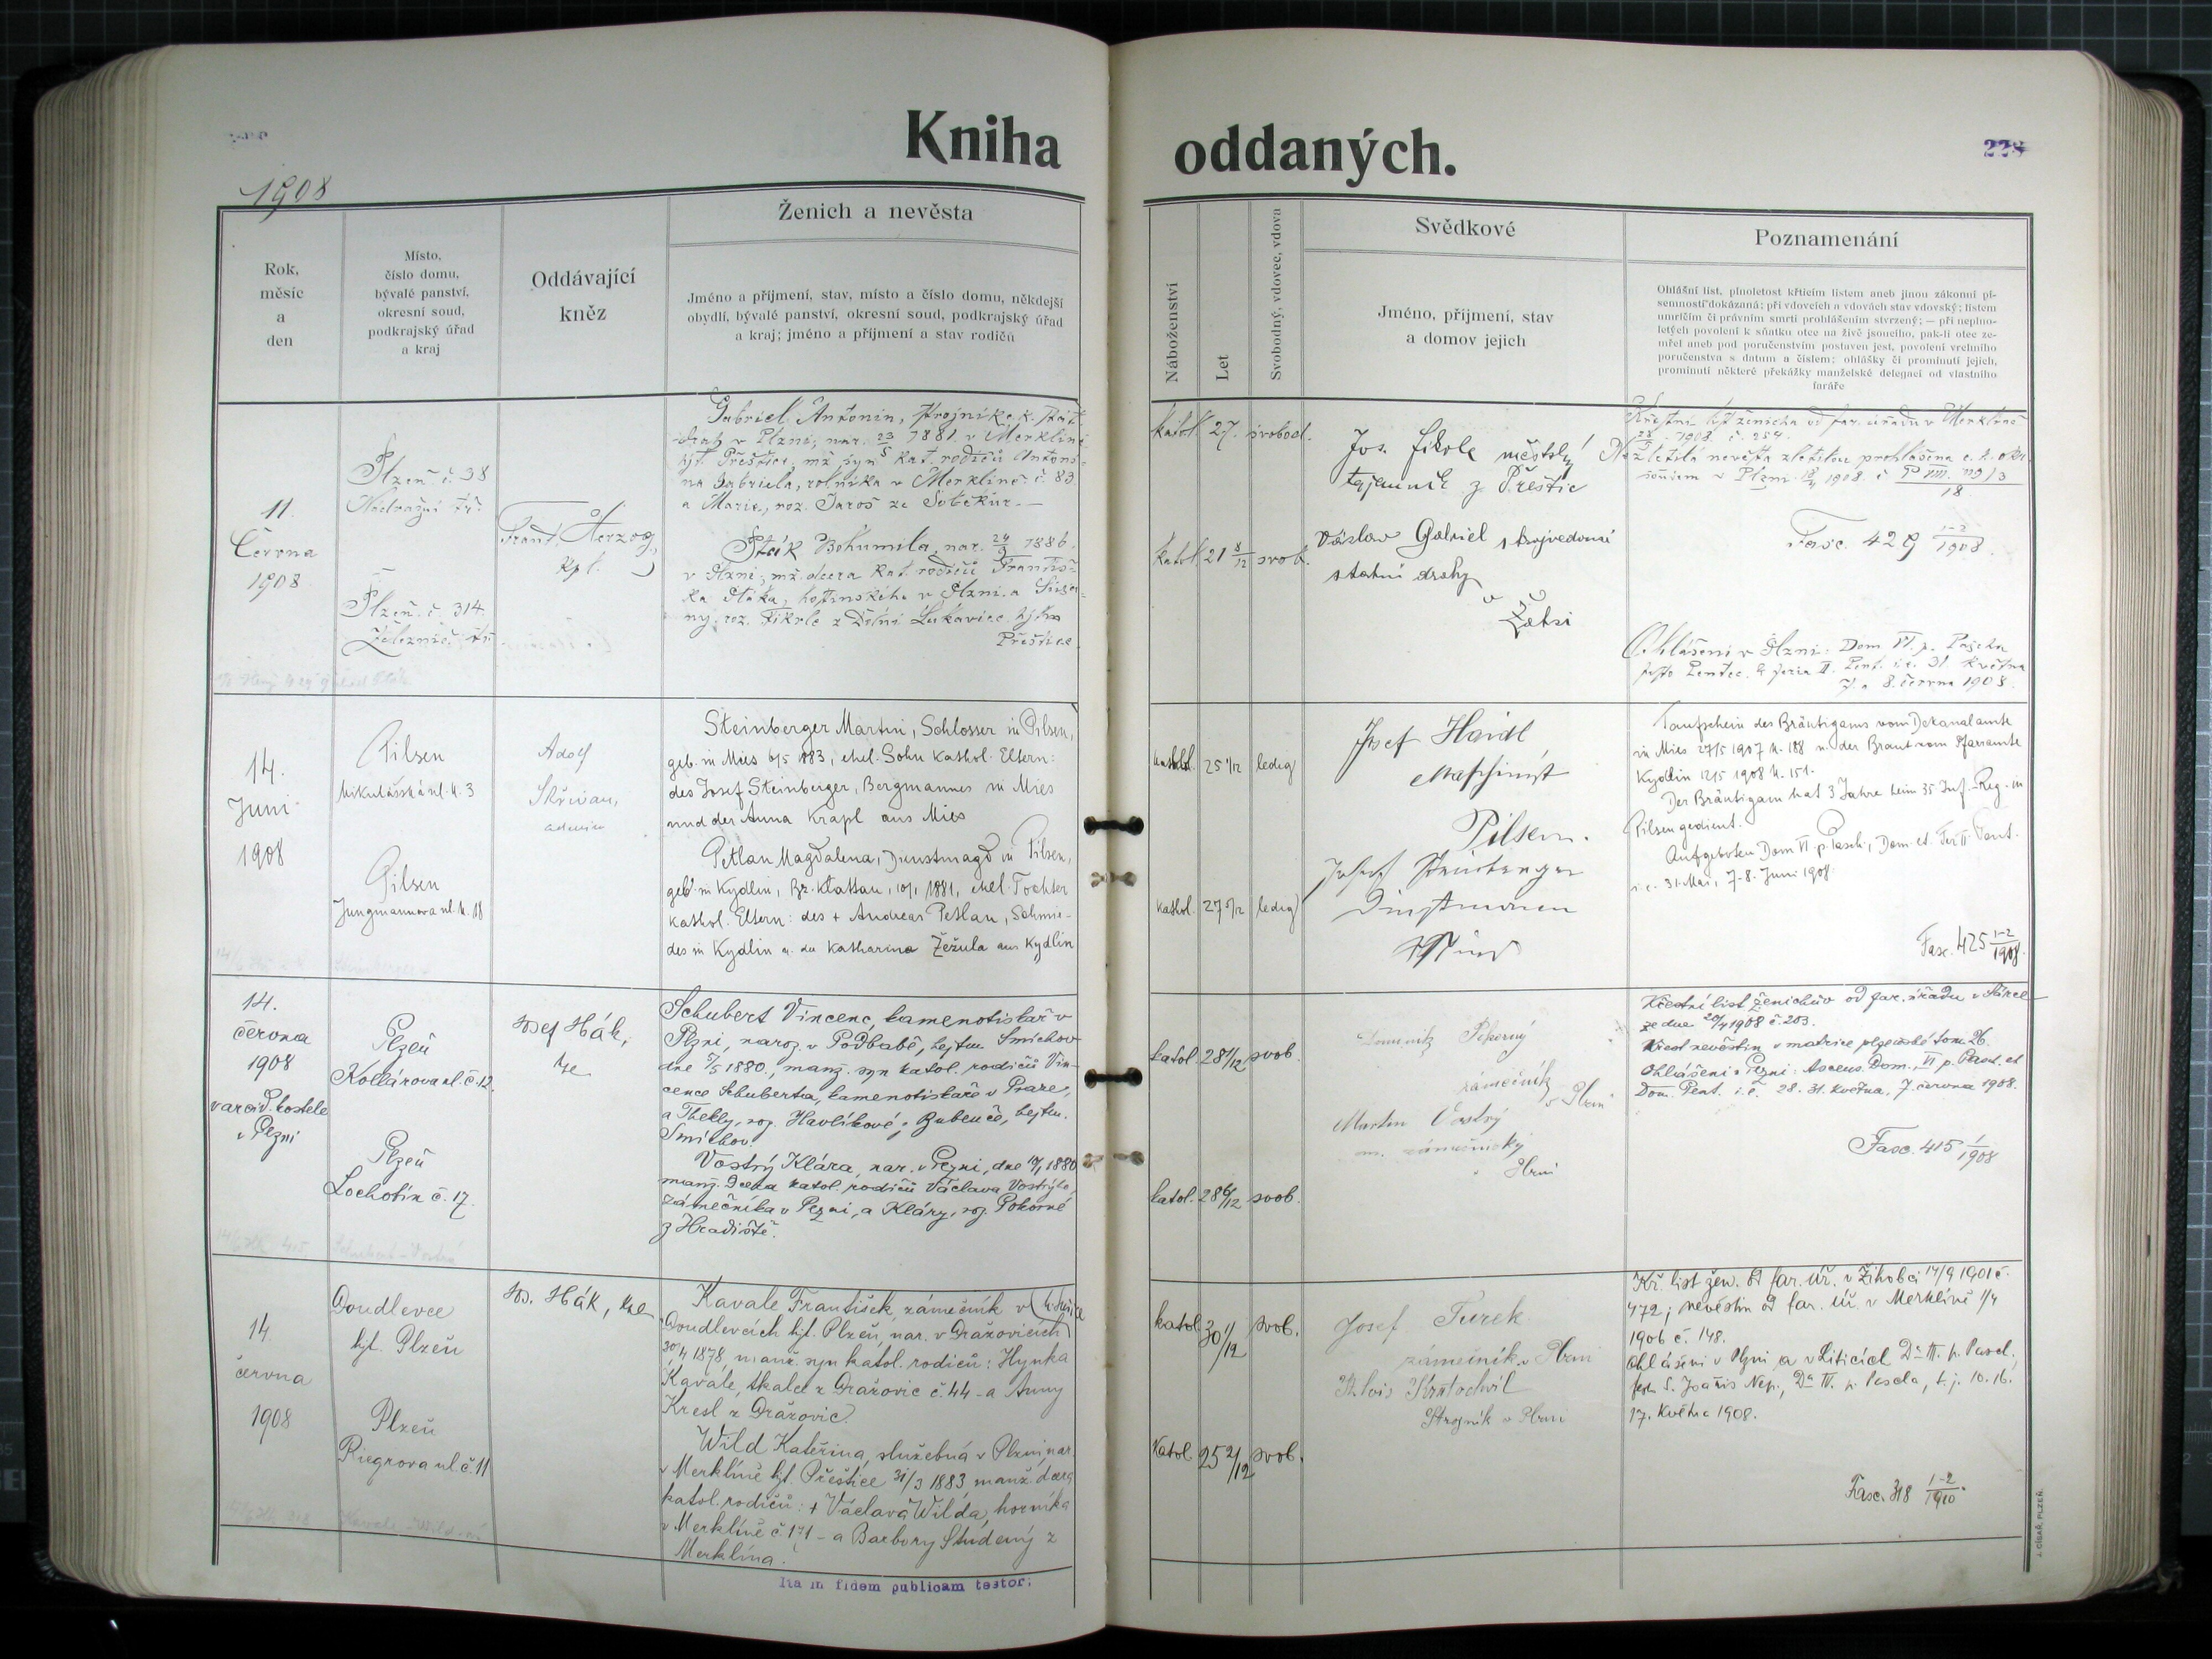 Kniha oddaných.
228
1908
Rok,
měsíc
a
den
Místo,
číslo domu,
bývalé panství,
okresní soud,
podkrajský úřad
a kraj
Oddávající
kněz
Ženich a nevěsta
Jméno a příjmení, stav, místo a číslo domu, někdejší
obydlí, bývalé panství, okresní soud, podkrajský úřad
a kraj; jméno a příjmení a stav rodičů
Náboženství
Let
Svobodný, vdovec, vdova
Svědkové
Jméno, příjmení, stav
a domov jejich
Poznamenání
Ohlášní list, plnoletost křticím listem aneb jinou zákonní pí-
semností dokázaná; při vdovcích a vdovách stav vdovský; listem
umrlčím či právním smrti prohlášením stvrzený; — při neplno-
letých povolení k sňatku otce na živě jsoucího, pak-li otec ze-
mřel aneb pod poručenstvím postaven jest, povolení vrchního
poručenstva s datum a číslem; ohlášky či prominutí jejich,
prominutí některé překážky manželské delegací od vlastního
faráře
11.
Června
1908
Plzeň č. 38
Nádražní tř.
Plzeň č. 314.
Železnič. tř.
Frant. Herzog,
kpl.
Gabriel Antonín, strojník c. k. stát.
drah v Plzni, nar. 23/5 1881 v Merklíně
hjt. Přeštice, mž. syn kat. rodičů Antoní-
na Gabriela, rolníka v Merklíně č. 83
a Marie, roz. Jaroš ze Soběkur. —
Pták Bohumila, nar. 24/9 1886.
v Plzni, mž. dcera kat. rodičů Františ-
ka Ptáka, hostinského v Plzni a
roz. Fikrle z Dolní Lukavice, hjtm
Přeštice.
katol. 27. svobod.
katol. 21 8/12 svob.
Jos. Fikrle městský
tajemník z Přeštic
Václav Gabriel strojvedoucí
státní dráhy
v
Žatci
Křestní list ženicha od far. úřadu v Merklíně
28/5 1908. č. 254.
Nezletilá nevěsta zletilou prohlášena c. k. okr.
soudem v Plzni 1908. č P VIII. 119/3
18
Fasc. 429 1-2/1908.
Ohlášeni v Plzni: Dom VI. p. Pascha
festo Pentec. & feria II. Pent. i. e. 31. května
7. a 8. června 1908.
14.
Juni
1908
Pilsen
Mikulášská ul. N. 3
Pilsen
Jungmannova ul. N. 18
Adolf
Skřivan,
Steinberger Martin, Schlosser in Pilsen,
geb. in Mies 6/5 1883, ehel. Sohn kathol. Eltern:
des Josef Steinberger, Bergmannes in Mies
und der Anna Krapl aus Mies
Petlan Magdalena, Dienstmagd in Pilsen,
geb. in Kydlin, Bz. Klattau, 10/1 1881, ehel. Tochter
kathol. Eltern: des + Andreas Petlan, Schmie-
des in Kydlin u. der Katharina Žežula aus Kydlin
kathol. 25 1/12 ledig
kathol. 27 5/12 ledig
Josef Haidl
Maschinist
Pilsen.
Josef Steinberger
Mies
Taufschein des Bräutigams vom Dekanalamte
in Mies 27/5 1907 N. 188 u. der Braut vom Pfarramte
Kydlin 12/5 1908 N. 151.
Der Bräutigam hat 3 Jahre beim 35 Inf.-Reg. in
Pilsen gedient.
Aufgeboten Dom VI p. Pasch., Dom. et. Fer II. Pent.
i. e. 31. Mai, 7-8. Juni 1908.
Fasc. 425 1-2/1908.
14.
června
1908
v arcid. kostele
v Plzni
Plzeň
Kollárova ul. č. 12.
Plzeň
Lochotín č. 17.
Josef Hák,
Schubert Vincenc, kamenotiskař v
Plzni, naroz. v Podbabě, hejtm. Smíchov
dne 5/5 1880., manž. syn katol. rodičů Vin-
cence Schuberta, kamenotiskaře v Praze,
a Thekly, roz. Havlíkové z Bubenče, hejtm.
Smíchov.
Vostrý Klára, nar. v Plzni, dne 1880
manž. dcera katol. rodičů Václava Vostrýho,
zámečníka v Plzni, a Kláry, roz. Pokorné
z Hradiště.
katol. 28 1/12 svob.
katol. 28 6/12 svob.
zámečník
v Plzni
Martin Vostrý
zámečnický
v Plzni
Křestní list ženichův od far. úřadu v Šárce
ze dne 20/4 1908 č. 203.
Křest nevěstin v matrice plzeňské tom 26.
Ohlášeni v Plzni: Ascens. Dom., VI p. Pasch. et
Dom. Pent. i. e. 28. 31. května, 7. června 1908.
Fasc. 415 1/1908
14.
června
1908
Doudlevce
hjt. Plzeň
Plzeň
Riegrova ul. č. 11
Jos. Hák,
Kavale František, zámečník v
Doudlevcích hjt. Plzeň, nar. v Dražovicích
30/4 1878, manž. syn katol. rodičů: Hynka
Kavale, tkalce z Dražovic č. 44 - a Anny
Kresl z Dražovic.
Wild Kateřina, služebná v Plzni, nar.
v Merklíně hjt. Přeštice 31/3 1883 manž. dcera
katol. rodičů: + Václava Wilda, horníka
v Merklíně č. 171 - a Barbory Studený z
Merklína.
katol. 30 1/12 svob.
katol. 25 2/12 svob.
Josef Turek
zámečník v Plzni
Alois Kratochvíl
Strojník v Plzni
Kř. list žen. od far. úř. v Žihobci 14/9 1901 č.
472; nevěstin od far. úř. v Merklíně 1/4
1906 č. 148.
Ohlášeni v Plzni a v Liticích Dca III. p. Pasch.,
fest. S. Joañis Nep., Dca IV. p. Pascha, t. j. 10. 16.
17. května 1908.
Fasc. 318 1-2/1910.
Ita in fidem publicam testor:
J. CÍSAŘ, PLZEŇ.